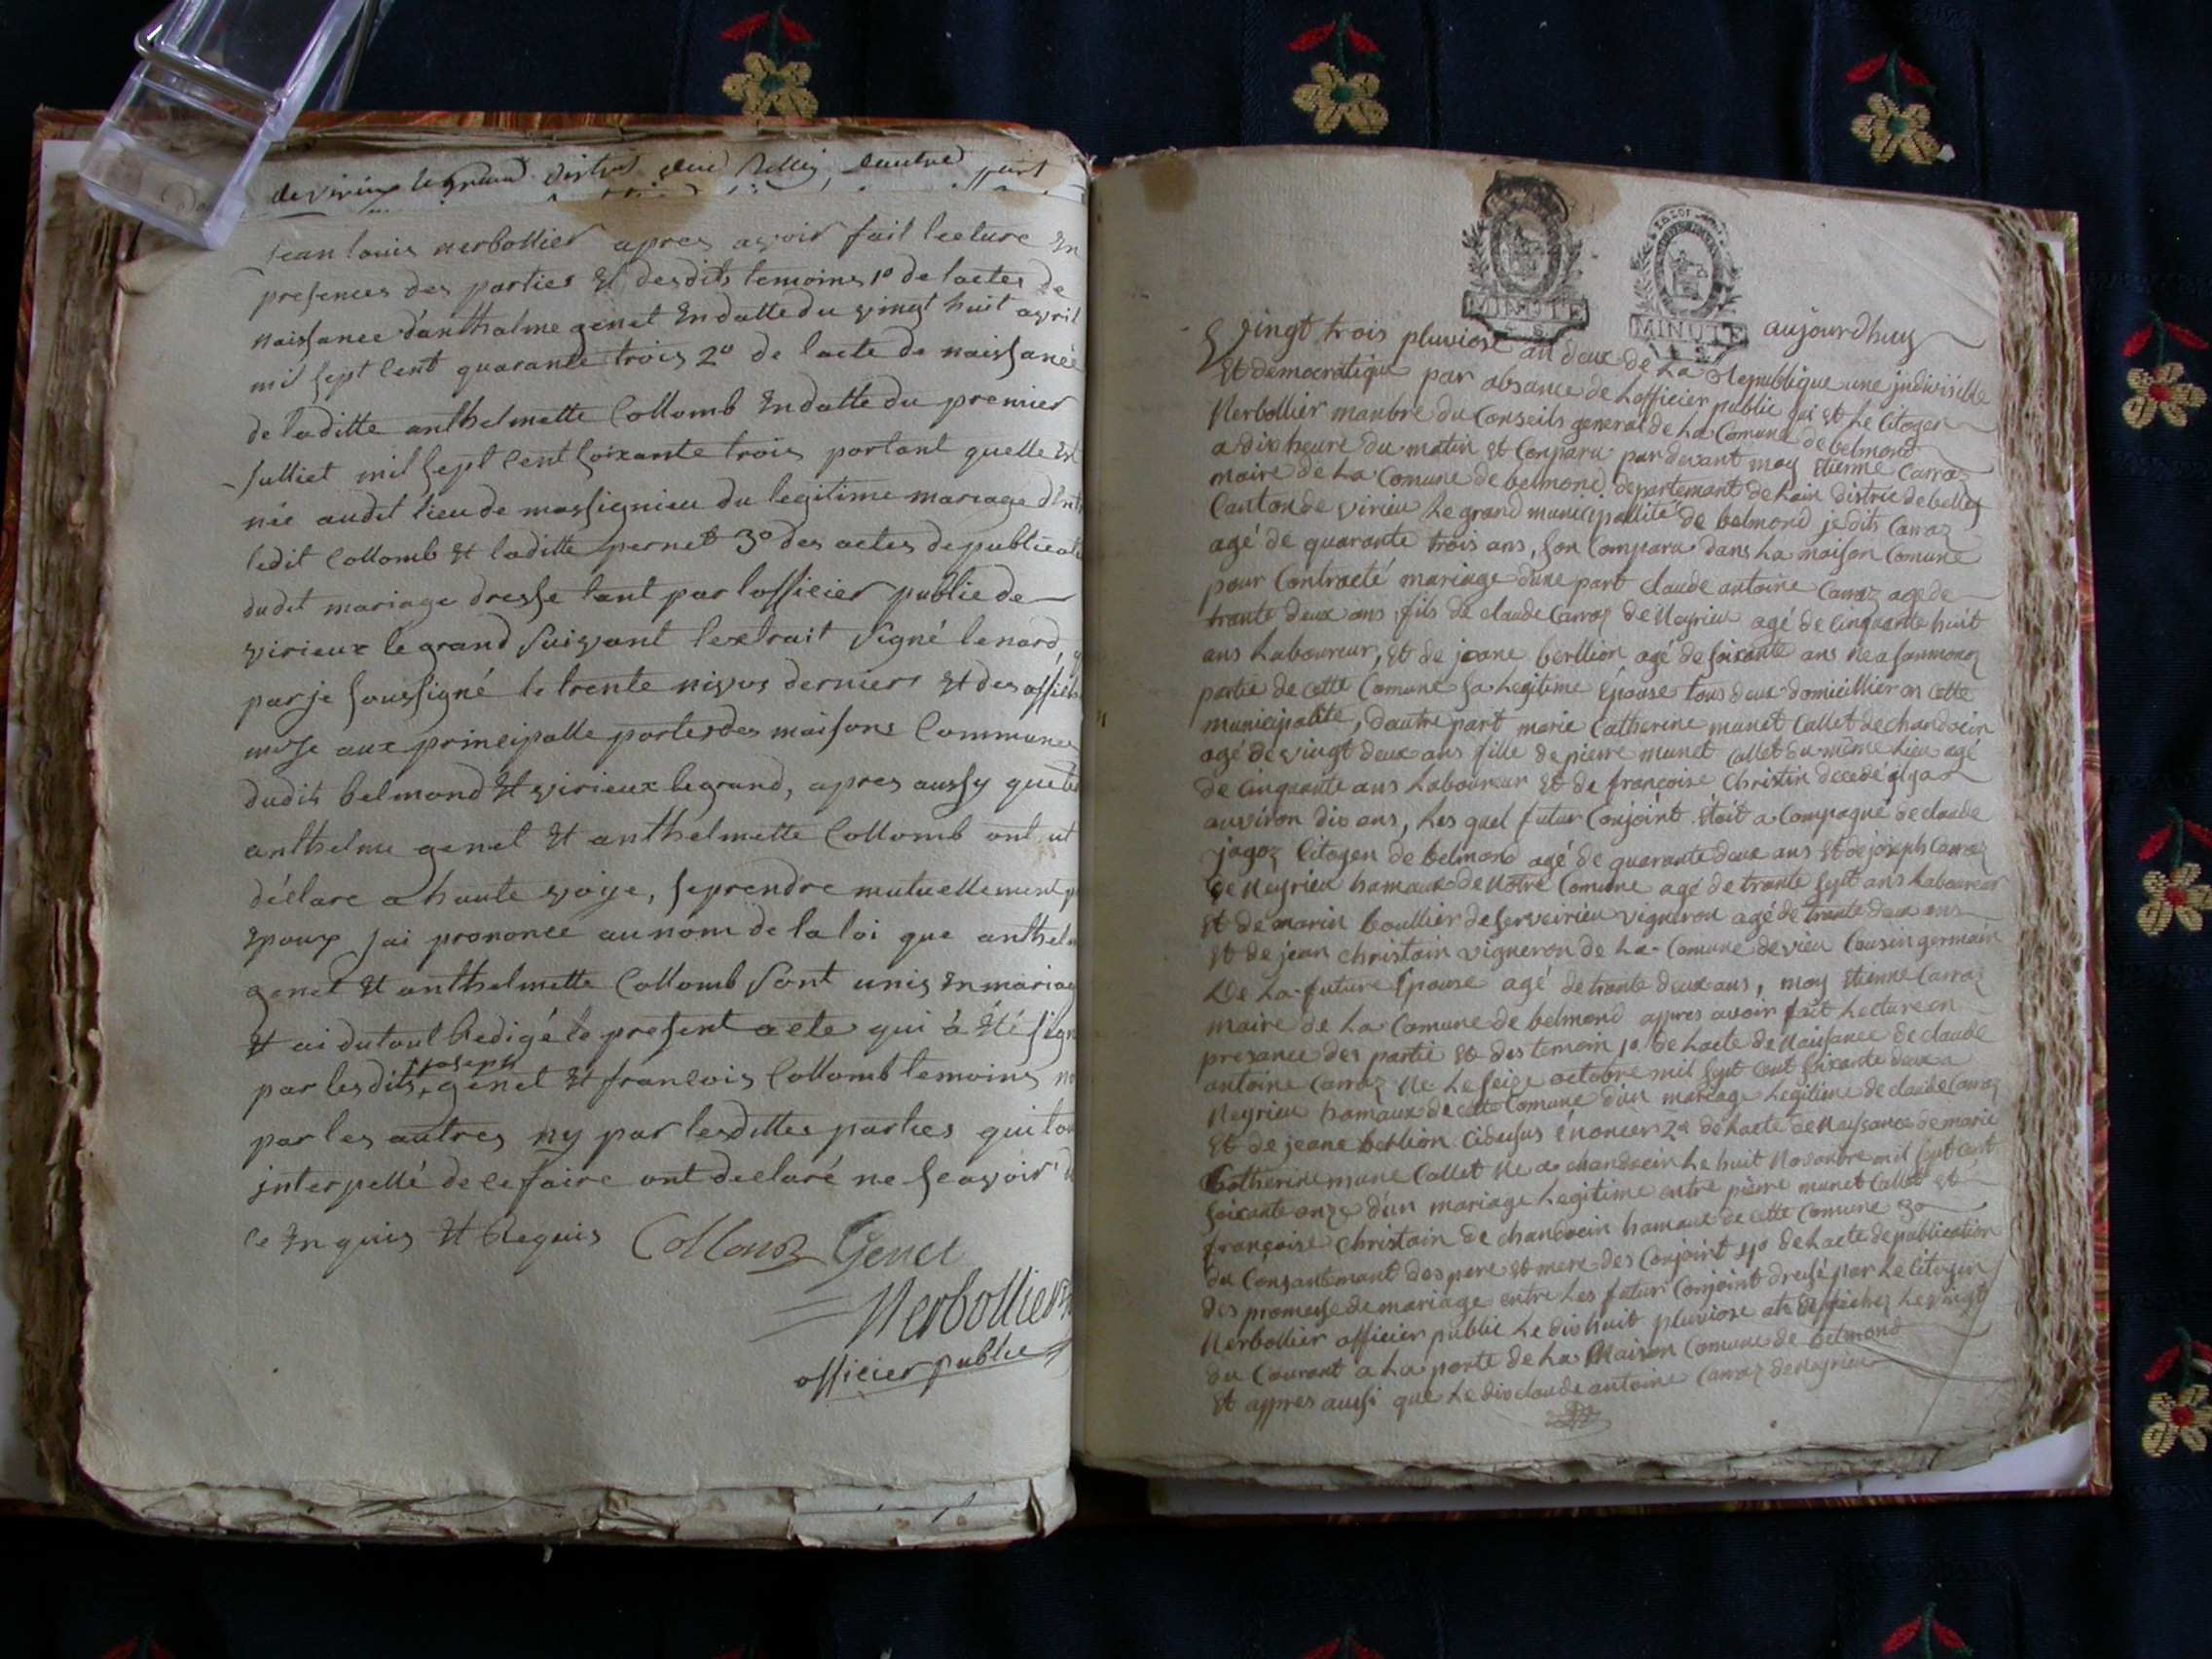 de virieux le grand
jean louis nerbollier apres avoir fait lecture En
presences des parties Et desdits temoins 1º de lactes de
naissance d'anthalme genet En datte du vingt huit avril
mil sept cent quarante trois 2º de lacte de naissance
de laditte anthelmette Collomb En datte du premier
Julliet mil sept cent soixante trois portant quelle Est
née audit lieu de massignieu du legitime mariage d'Ent
ledit Collomb Et laditte pernet 3º des actes de publicat
dudit mariage dresse tant par lofficier public de
virieux le grand suivant lextrait signé lenard
par je soussigné le trente nivos dernier Et des affich
mise aux principalle portes des maisons Communes
dudit belmond Et virieux le grand, apres aussy que les
anthelme genet Et anthelmette Collomb ont ut
déclare a haute voix, se prendre mutuellement p
Epoux jai prononcé au nom de la loi que anthel
genet Et anthelmette Collomb sont unis En mariag
Et ai du tout Redigé le present acte qui à Eté sign
joseph
par lesdits genet Et françois Collomb temoins no
par les autres ny par lesdittes parties qui lon
interpellé de ce faire ont declaré ne scavoir
ce Enquis Et Requis Collomb Genet
Nerbollier
officier public
MINUTE
MINUTE
aujourdhuy
vingt trois pluviose an deux de La Republique une jndivisible
Et democratique par absance de Lofficier public qui Et Le Citoyen
Nerbollier manbre du Conseils general de La Comune de belmond
a dix heure du matin Et Comparu par devant moy Etienne Carraz
maire de La Comune de belmond departemant de Lain district de belley
Canton de virieu Le grand municipallité de belmond je dits Carraz
agé de quarante trois ans, son Comparu dans La maison Comune
pour Contracté mariage dune part claude antoine Carraz age de
trante deux ans fils de claude Carraz de Neyrieu agé de Cinquante huit
ans Laboureur, Et de jeane berllion agé de soixante ans
partie de cette Comune sa Legitime Epouse tous deux domicillier en cette
municipalité, dautre part marie Catherine munet Callet de chandocin
agé de vingt deux ans fille de pierre munet Callet du même Lieu agé
de Cinquante ans Laboureur Et de françoise Christin decedé jlya
auviron dix ans, Les quel futur Conjoint Etoit a Compagné de claude
jagoz Citoyen de belmond agé de quarante deux ans Et de joseph Carraz
de Neyrieu hamaux de Notre Comune agé de trante sept ans Laboureur
Et de marin boullier de serveirieu vigneron agé de trante deux ans
Et de jean christain vigneron de La Comune de vieu Cousin germain
De La future Epouse agé de trante deux ans, moy Etienne Carraz
maire de La Comune de belmond appres avoir fait Lecture en
presance des partie Et des temoin 1º de Lacte de Naissance de claude
antoine Carraz Ne Le seize octobre mil sept cent soixante deux a
Neyrieu hamaux de cette Comune dun mariage Legitime de claude Carraz
Et de jeane berllion cidessus énoncer 2º de Lacte de Naysance de marie
Catherine mune Callet Ne a chandocin Le huit Novanbre mil sept cent
soixante onze dun mariage Legitime entre pierre munet Callet Et
françoise christain de chandocin hamaux de cette Comune 3º
du Consantemant des pere Et mere des Conjoint 4º de Lacte de publication
des promesse de mariage entre Les futur Conjoint dressé par Le Citoyen
Nerbollier officier public Le dix huit pluviose Le vingt
du Courant a La porte de La Maison Comune de belmond
Et appres aussi que Le dis claude antoine Carraz de Neyrieu